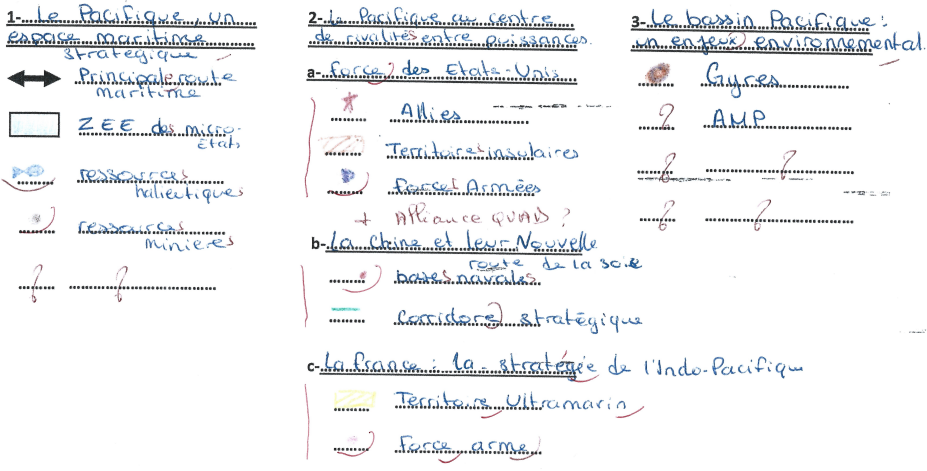 1- Le Pacifique, un
espace maritime
stratégique
Principale route
maritime
ZEE des micro-
États
ressources
halieutiques
ressources
minieres
?
?
2- Le Pacifique au centre
de rivalités entre puissances.
a- force des Etats-Unis
Allies
Territoires insulaires
forces Armées
+ Alliance QUAD ?
b- La Chine et leur Nouvelle
route de la soie
bases navales
Corridore stratégique
c- La france : la stratégée de l'Indo-Pacifique
Territoire Ultramarin
Force arme
3- Le bassin Pacifique :
un enjeux environnemental.
Gyres
? AMP
? ?
? ?